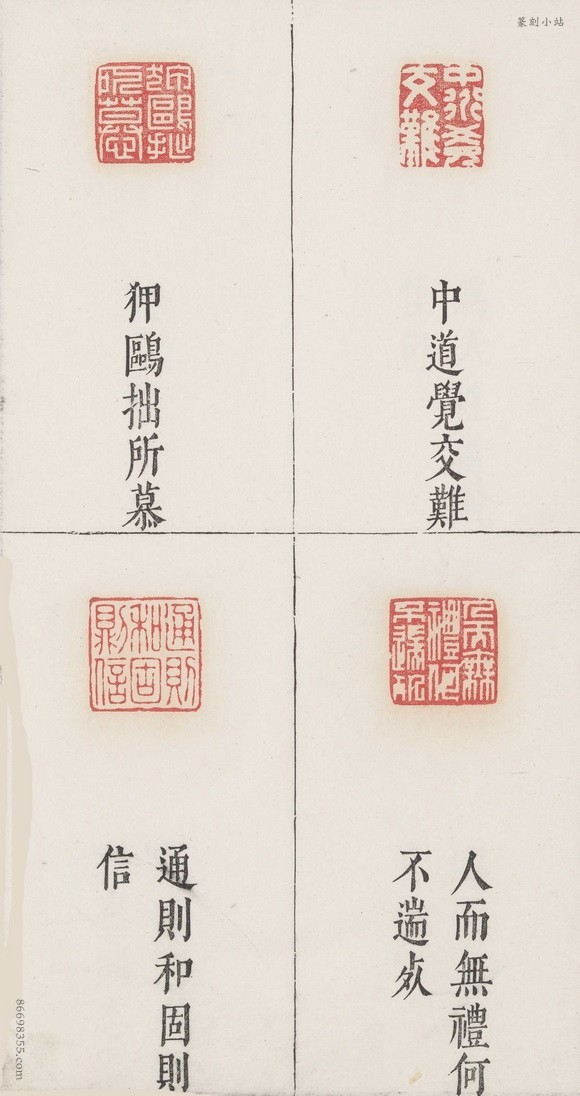 篆刻小站
中道覺交難
狎鷗拙所慕
人而無禮何
不遄死
通則和固則
信
通則
和固
則信
86698355.com